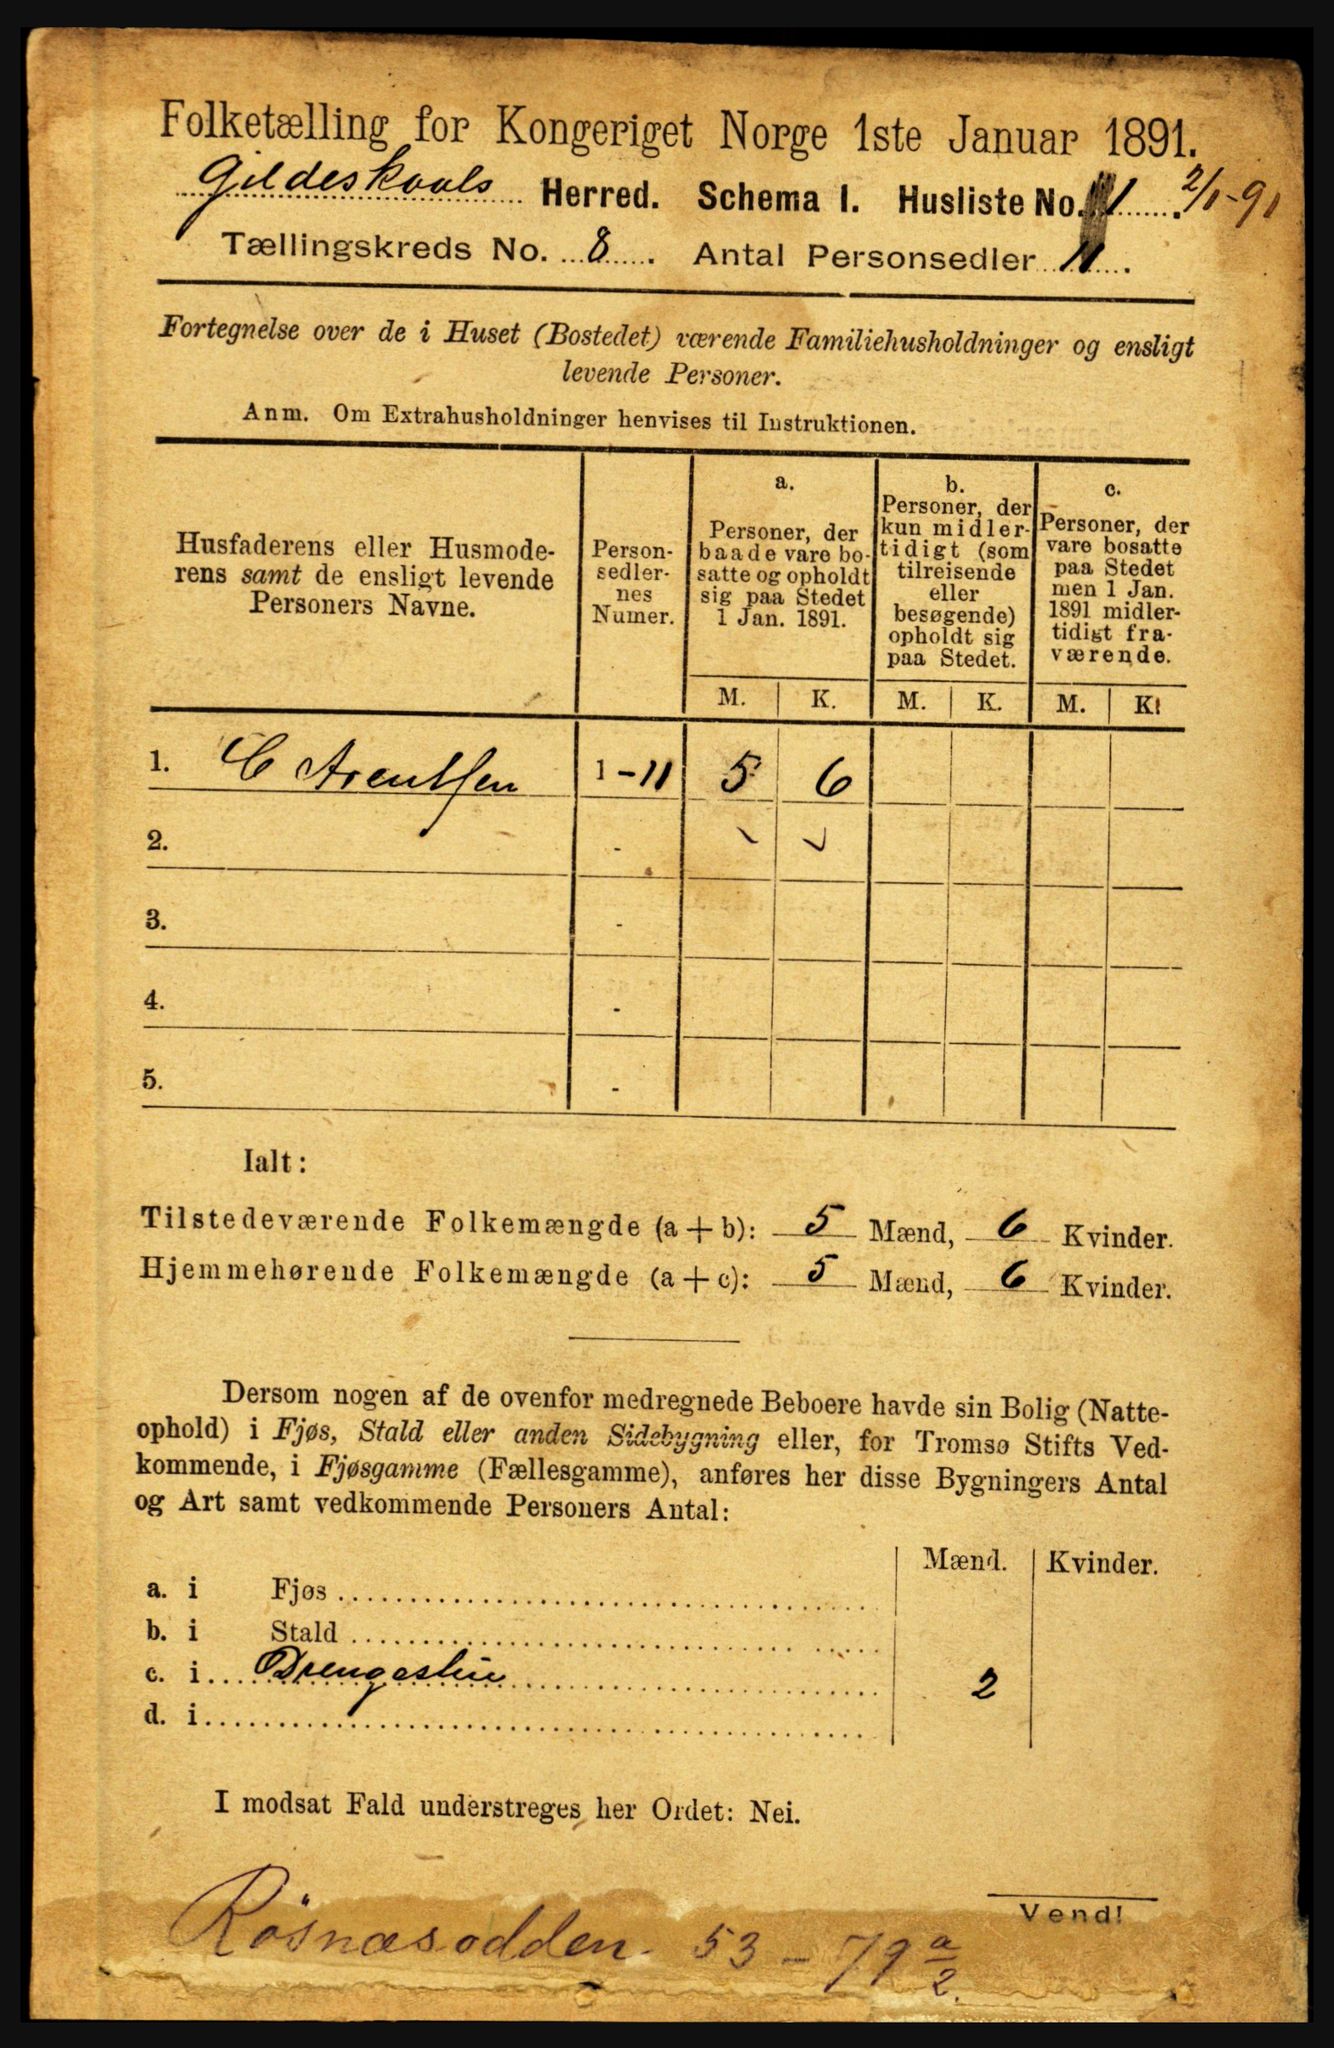 Folketælling for Kongeriget Norge 1ste Januar 1891.
Gildeskaals Herred. Schema I. Husliste No. 1. 2/1-91
Tællingskreds No. 8. Antal Personsedler 11.
Fortegnelse over de i Huset (Bostedet) værende Familiehusholdninger og ensligt
levende Personer.
Anm. Om Extrahusholdninger henvises til Instruktionen.
Husfaderens eller Husmode-
rens samt de ensligt levende
Personers Navne.
Person-
sedler-
nes
Numer.
a.
Personer, der
baade vare bo-
satte og opholdt
sig paa Stedet
1 Jan. 1891.
b.
Personer, der
kun midler-
tidigt (som
tilreisende
eller
besøgende)
opholdt sig
paa Stedet.
c.
Personer, der
vare bosatte
paa Stedet
men 1 Jan.
1891 midler-
tidigt fra-
værende.
M. K. M. K. M. K.
1. C Arentsen 1-11 5 6
2. -
3. -
4. -
5. -
Ialt:
Tilstedeværende Folkemængde (a + b): 5 Mænd, 6 Kvinder.
Hjemmehørende Folkemængde (a + c): 5 Mænd, 6 Kvinder.
Dersom nogen af de ovenfor medregnede Beboere havde sin Bolig (Natte-
ophold) i Fjøs, Stald eller anden Sidebygning eller, for Tromsø Stifts Ved-
kommende, i Fjøsgamme (Fællesgamme), anføres her disse Bygningers Antal
og Art samt vedkommende Personers Antal:
Mænd. Kvinder.
a. i Fjøs
b. i Stald
c. i Drengestue 2
d. i
I modsat Fald understreges her Ordet: Nei.
Vend!
Rösnæsodden 53 - 79 a/2.